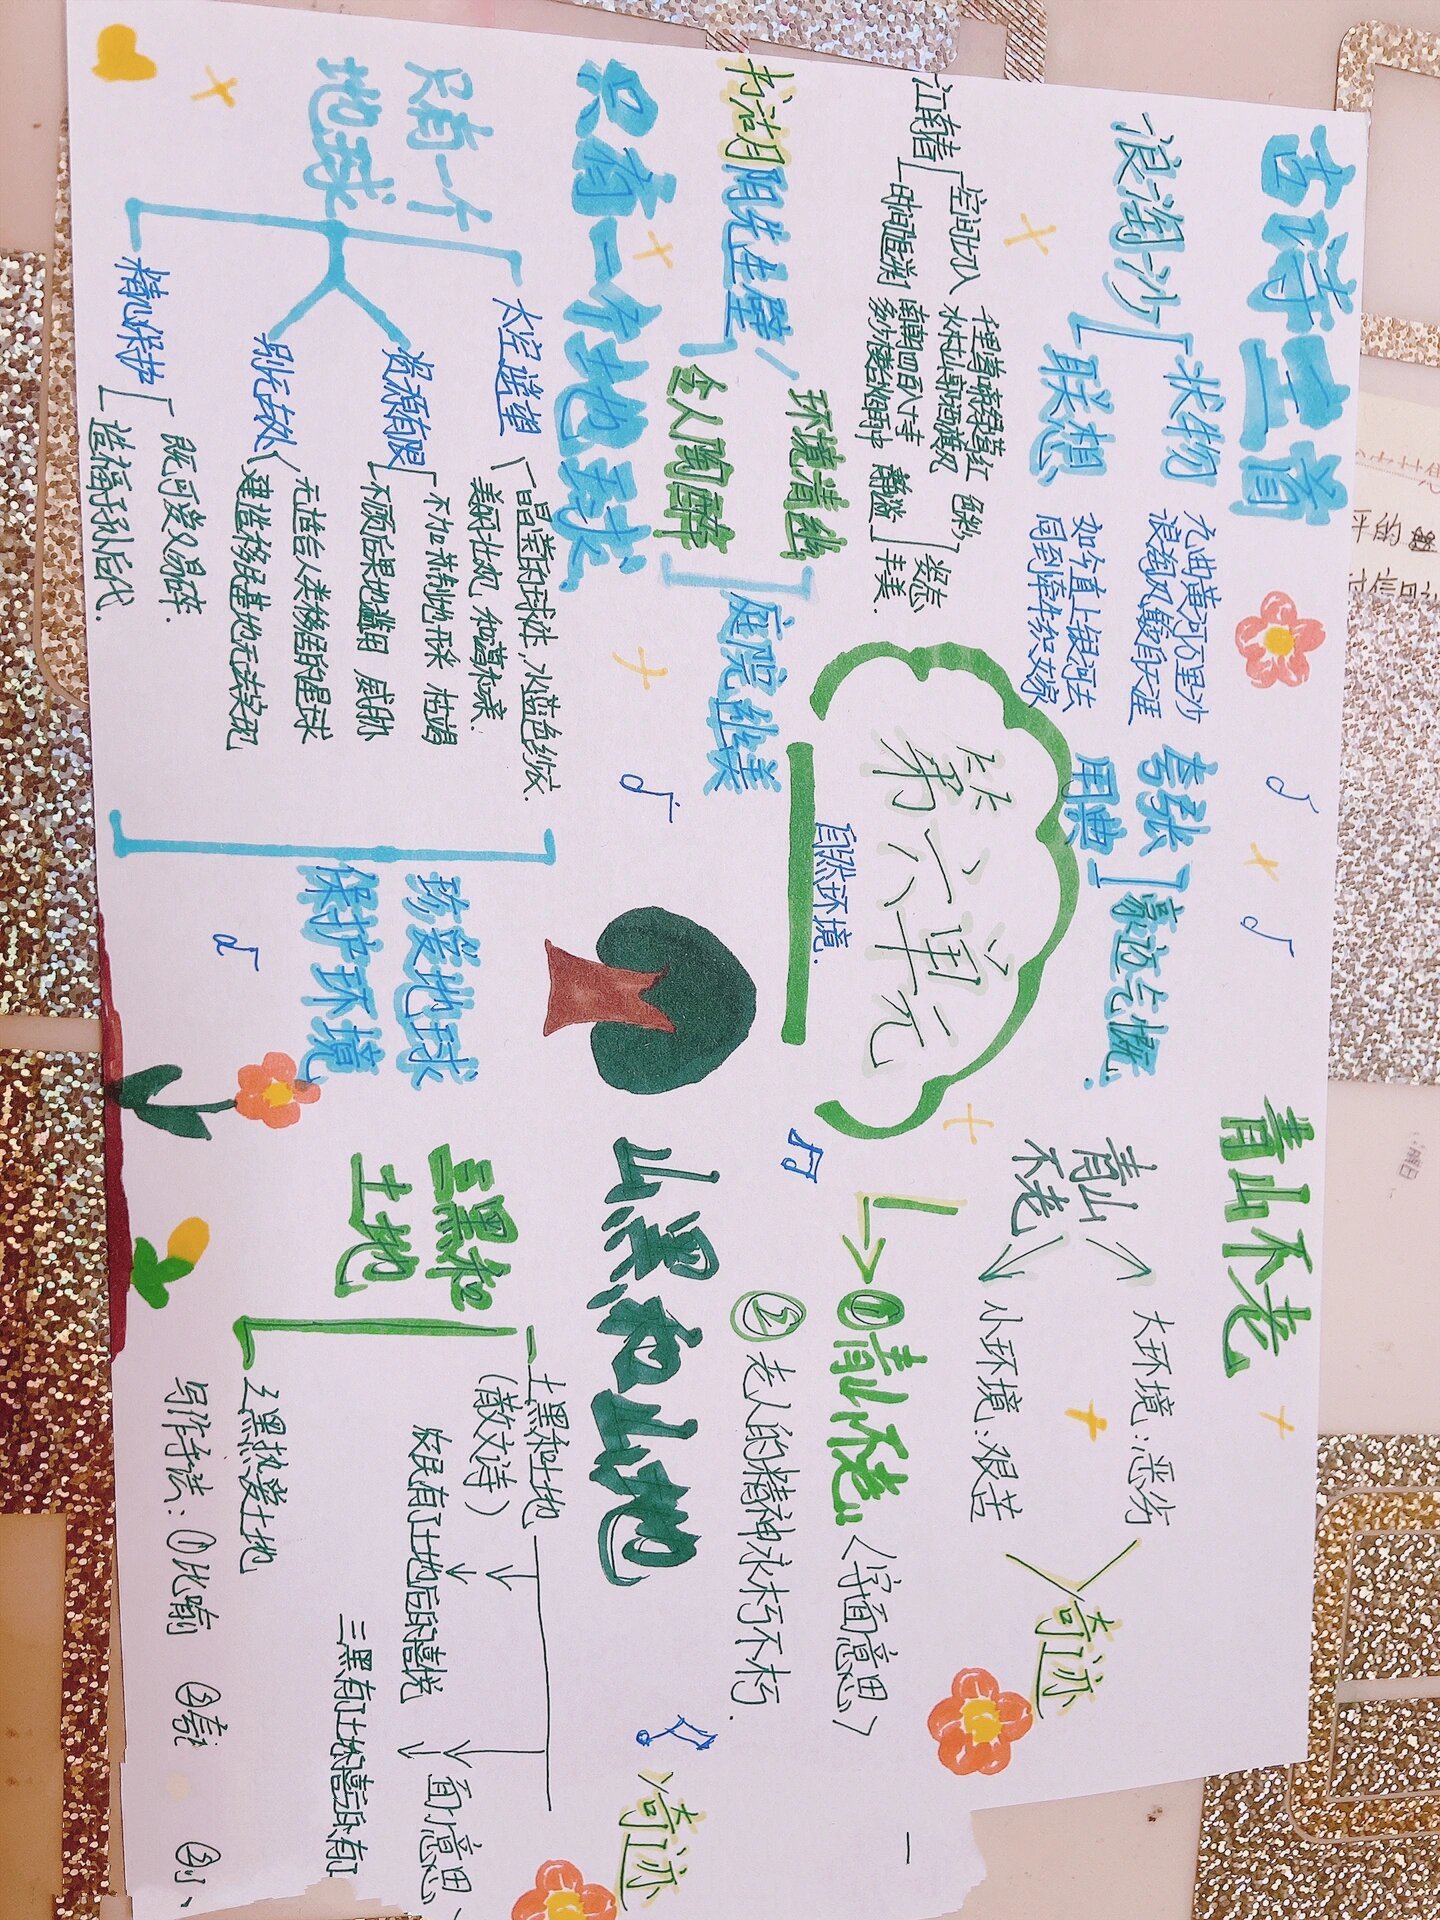 古诗三首
浪淘沙
状物
联想
九曲黄河万里沙
浪淘风簸自天涯
如今直上银河去
同到牵牛织女家
夸张
用典
豪迈气慨.
江南春
空间切入
时间追溯
千里莺啼绿暮红
水村山郭酒旗风
南朝四百八十寺
多少楼台烟雨中
色彩
静谧
姿态
丰美.
书湖阴先生壁
环境清幽
令人陶醉
庭院绝美
第六单元
自然环境.
只有一个地球
只有一个
地球
太空遥望
晶莹的球体,水蓝色纱衣.
美丽壮观,和蔼可亲.
资源有限
不加节制地开采 枯竭
不顾后果地滥用 威胁
别无去处
无适合人类移居的星球
建造移民基地无法实现
精心保护
既可爱又易碎.
造福子孙后代.
珍爱地球
保护环境
青山不老
青山
不老
大环境:恶劣
小环境:艰苦
奇迹
①青山不老
〈字面意思〉
②老人的精神永朽不朽.
奇迹
三黑和土地
三黑和
土地
土黑和土地
(散文诗)
农民有了土地后的喜悦
面意思
三黑有了土地
三黑热爱土地
写作手法:①比喻